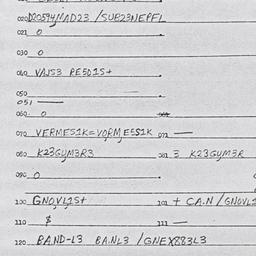 020 D20594MAD23 /SUB23NEPFL
021 0
030 0
040 VAJS3 PE5D1S+
050
051
060. 0
070 VERMES1K=VORMES1K 071 —
080 K23GYM3R3 081 3 K23GYM3R
090 0
100 GNOVL1S+ 101 + CA.N /GNOVL1
110 $ 111 —
120 BA.ND-L3 BA.NL3 /GNEX883L3